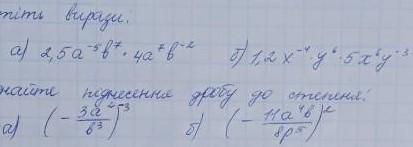 тіть вирази:
а) 2,5a⁻⁵b⁷ · 4a⁷b⁻² б) 1,2x⁻⁴ · y⁶ · 5x⁶y⁻³
найте піднесення дробу до степеня:
а) (-3a⁻²/b³)⁻³ б) (-11a⁴b/8p⁵)²